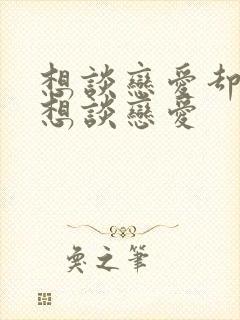 想談戀愛却
想談戀愛
奐之筆